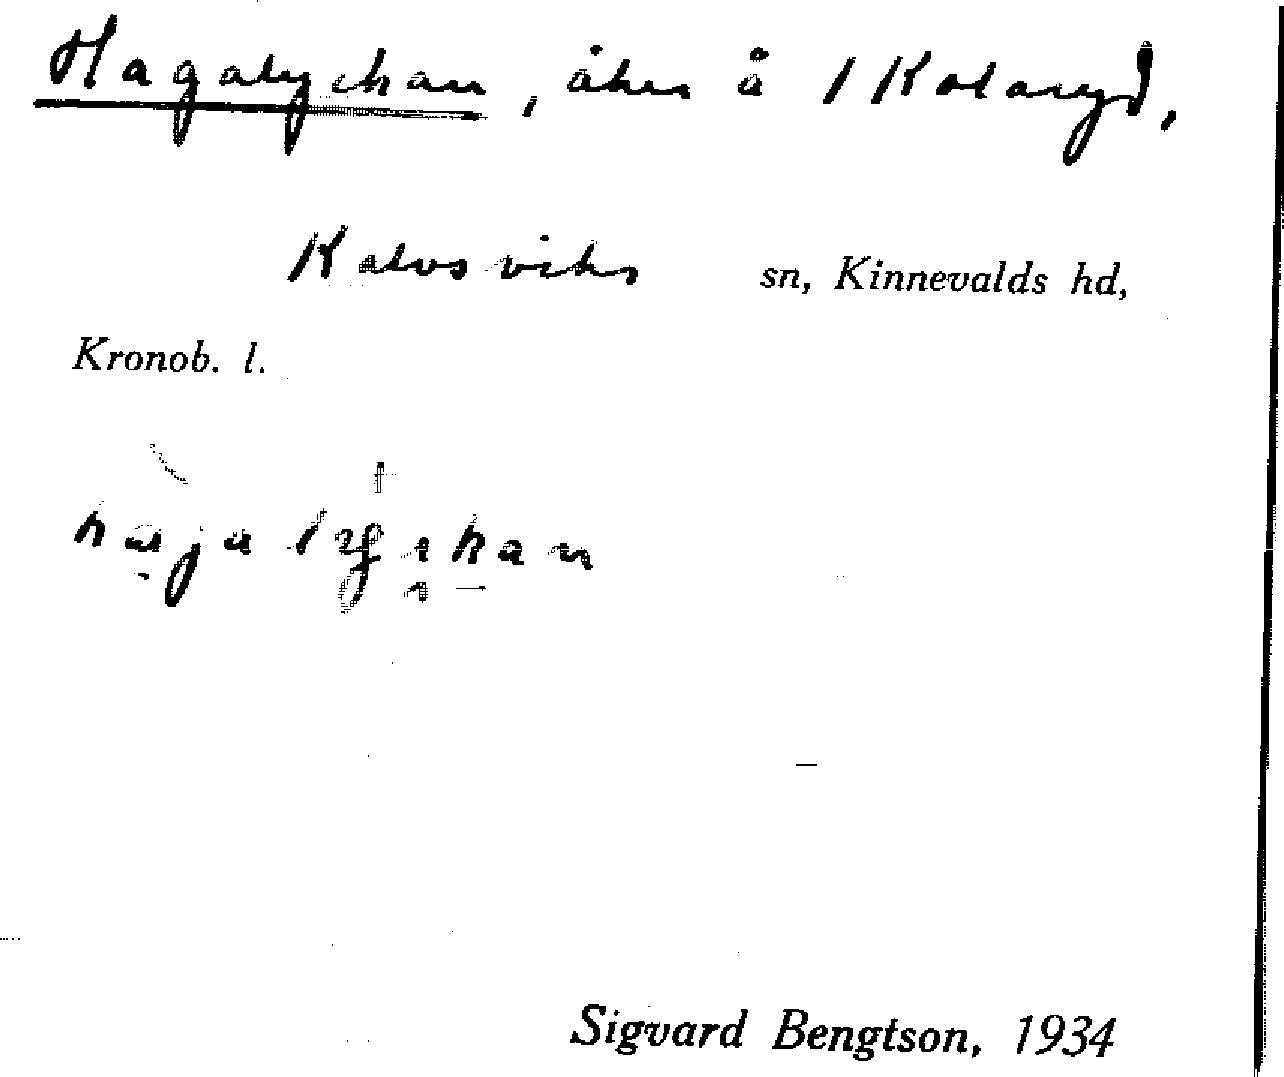 Hagalyckan, åker å 1 Kolaryd,
Kalvsviks sn, Kinnevalds hd,
Kronob. l.
Sigvard Bengtson, 1934